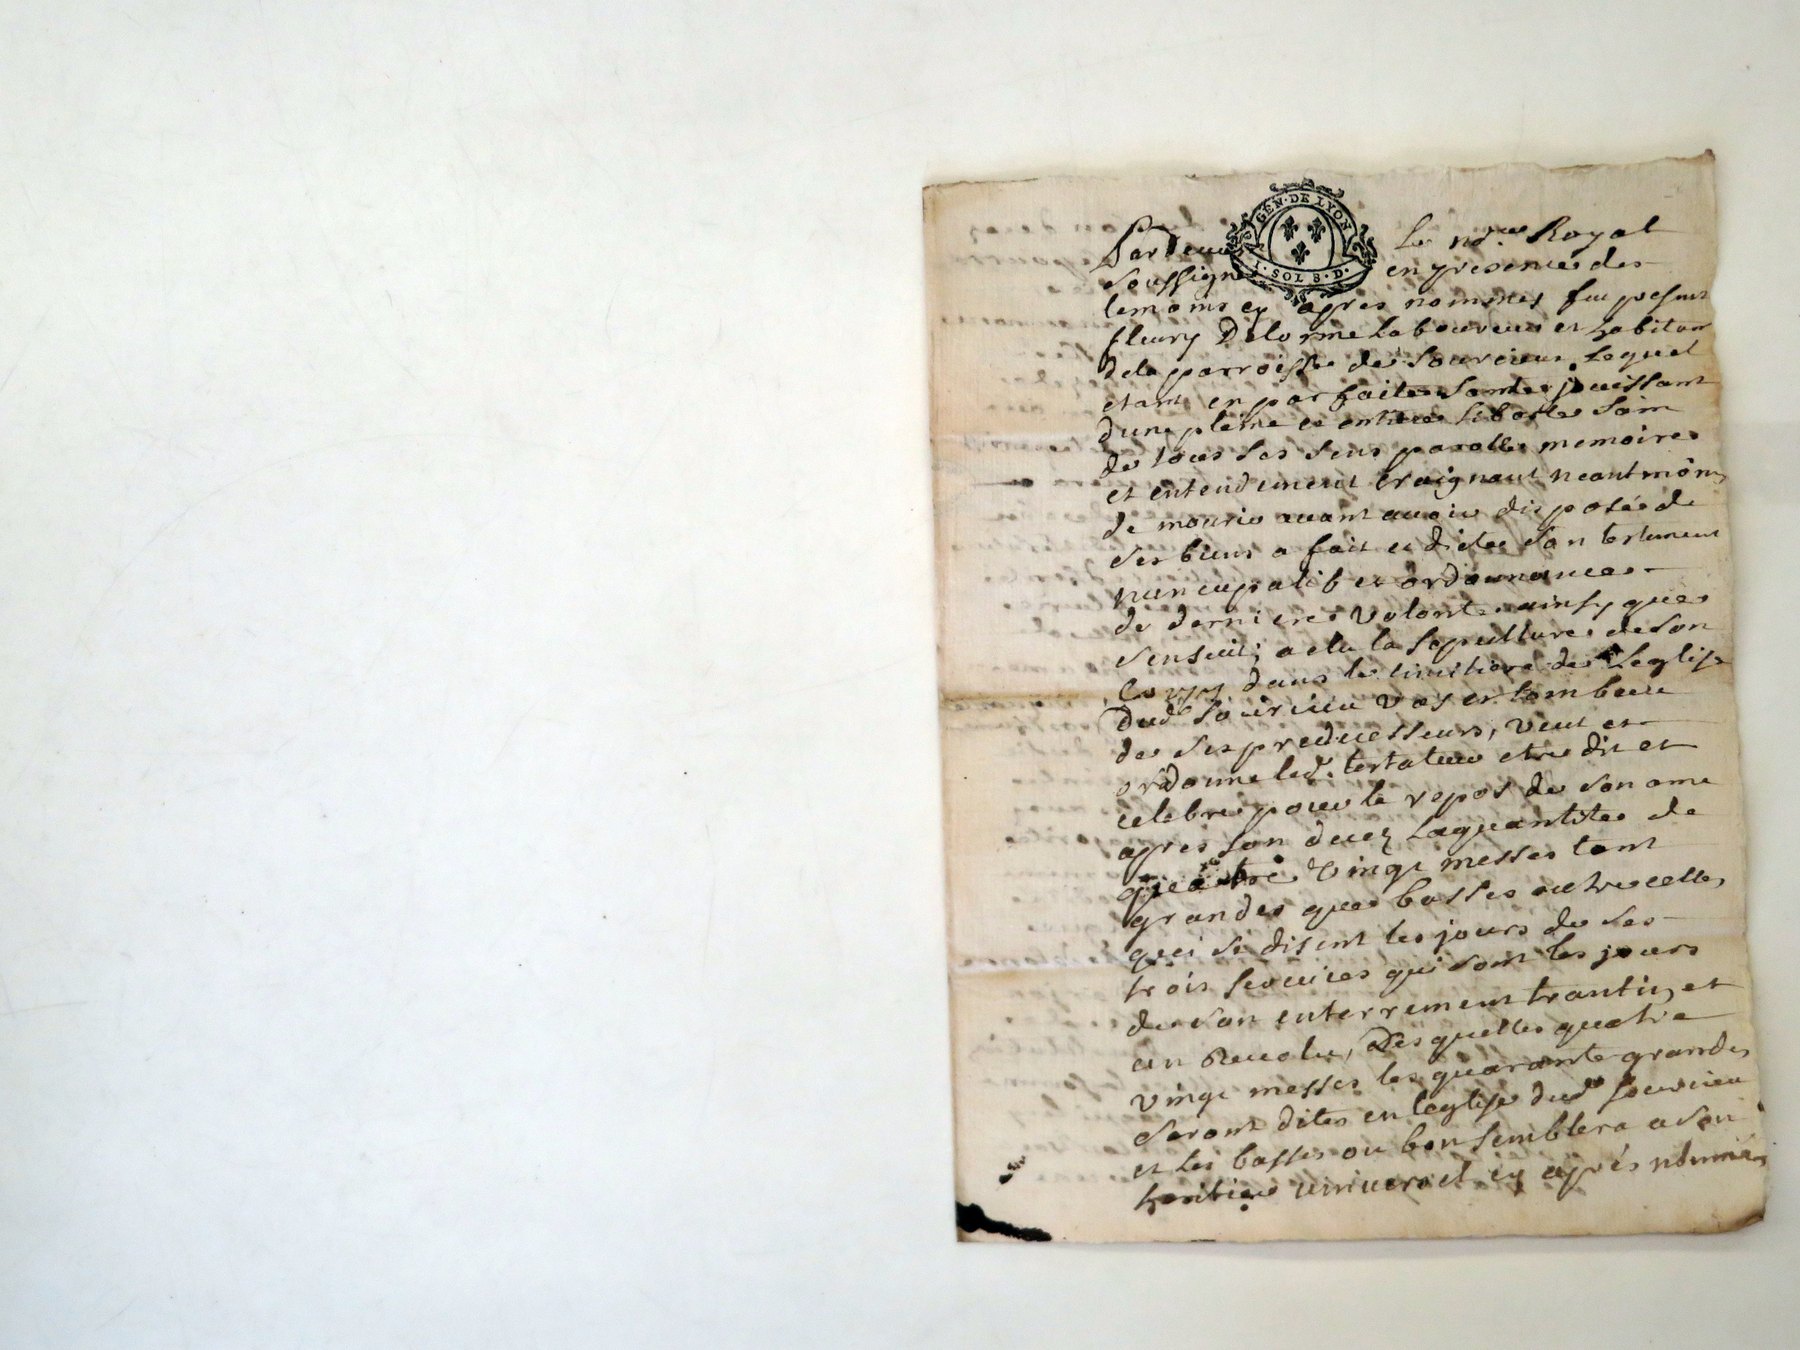 GEN. DE LYON
I. SOL 8. D.
Pardevant Le no.re Royal
soussigné en presence des
temoins cy apres nommes fut present
fleury Delorme Laboureur et habitant
dela parroisse de Sourcieux Lequel
etant en parfaite Santé jouissant
dune pleine et entiere Liberté Sain
de tous ses sens parolle memoire
et entendement craignant neantmoins
de mourir avant avoir disposé de
ses biens a fait et dicté Son testament
nuncupatif et ordonnance
de derniere volonté ainsy que
sensuit, a elu la sepulture de Son
Corps dans le cimitiere de Leglise
dud. Sourcieu vas et tombeau
de ses predecesseurs, veut et
ordonne led. testateur etre dit et
celebré pour le repos de Son ame
apres son deces Laquantité de
quatre vingt messes tant
grandes que basses outre celles
qui se disent les jours de ses
trois services qui sont les jours
de son enterrement trantin et
an Revolu, Desquelles quatre
vingt messes les quarante grandes
seront dites en leglise dud. Sourcieu
et les basses ou bon semblera a Son
heritier universel cy après nommé